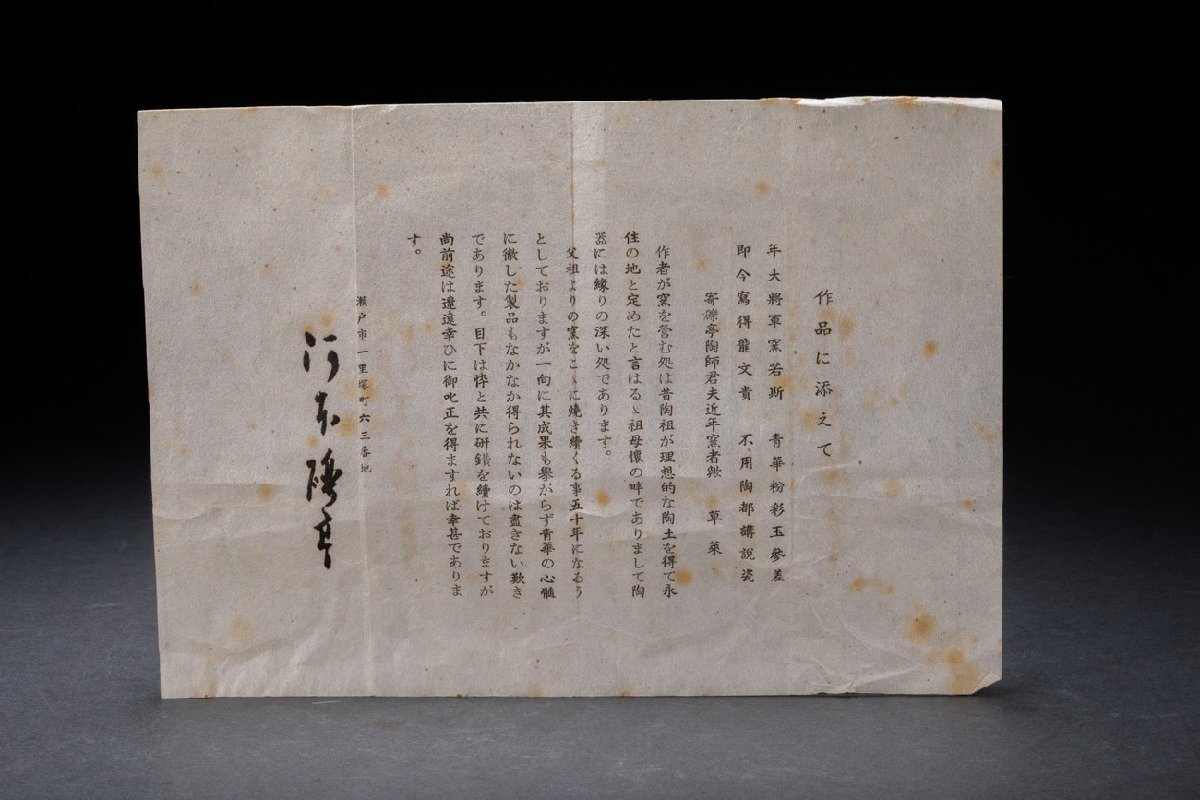 作品に添えて
年大將軍窯若斯　青華粉彩玉參差
即今寫得龍文貴　不用陶都講說瓷
寄礫亭陶師君夫近年窯者歟　草萊
作者が窯を営む処は昔陶祖が理想的な陶土を得て永
住の地と定めたと言はるゝ祖母懷の畔でありまして陶
器には緣りの深い処であります。
父祖よりの窯をこゝに燒き續くる事五十年になるう
としておりますが一向に其成果も擧がらず青華の心髓
に徹した製品もなかなか得られないのは盡きない歎き
であります。目下は悴と共に研鑽を續けておりますが
尚前途は遼遠幸ひに御叱正を得ますれば幸甚でありま
す。
瀬戸市一里塚町六三番地
河本礫亭